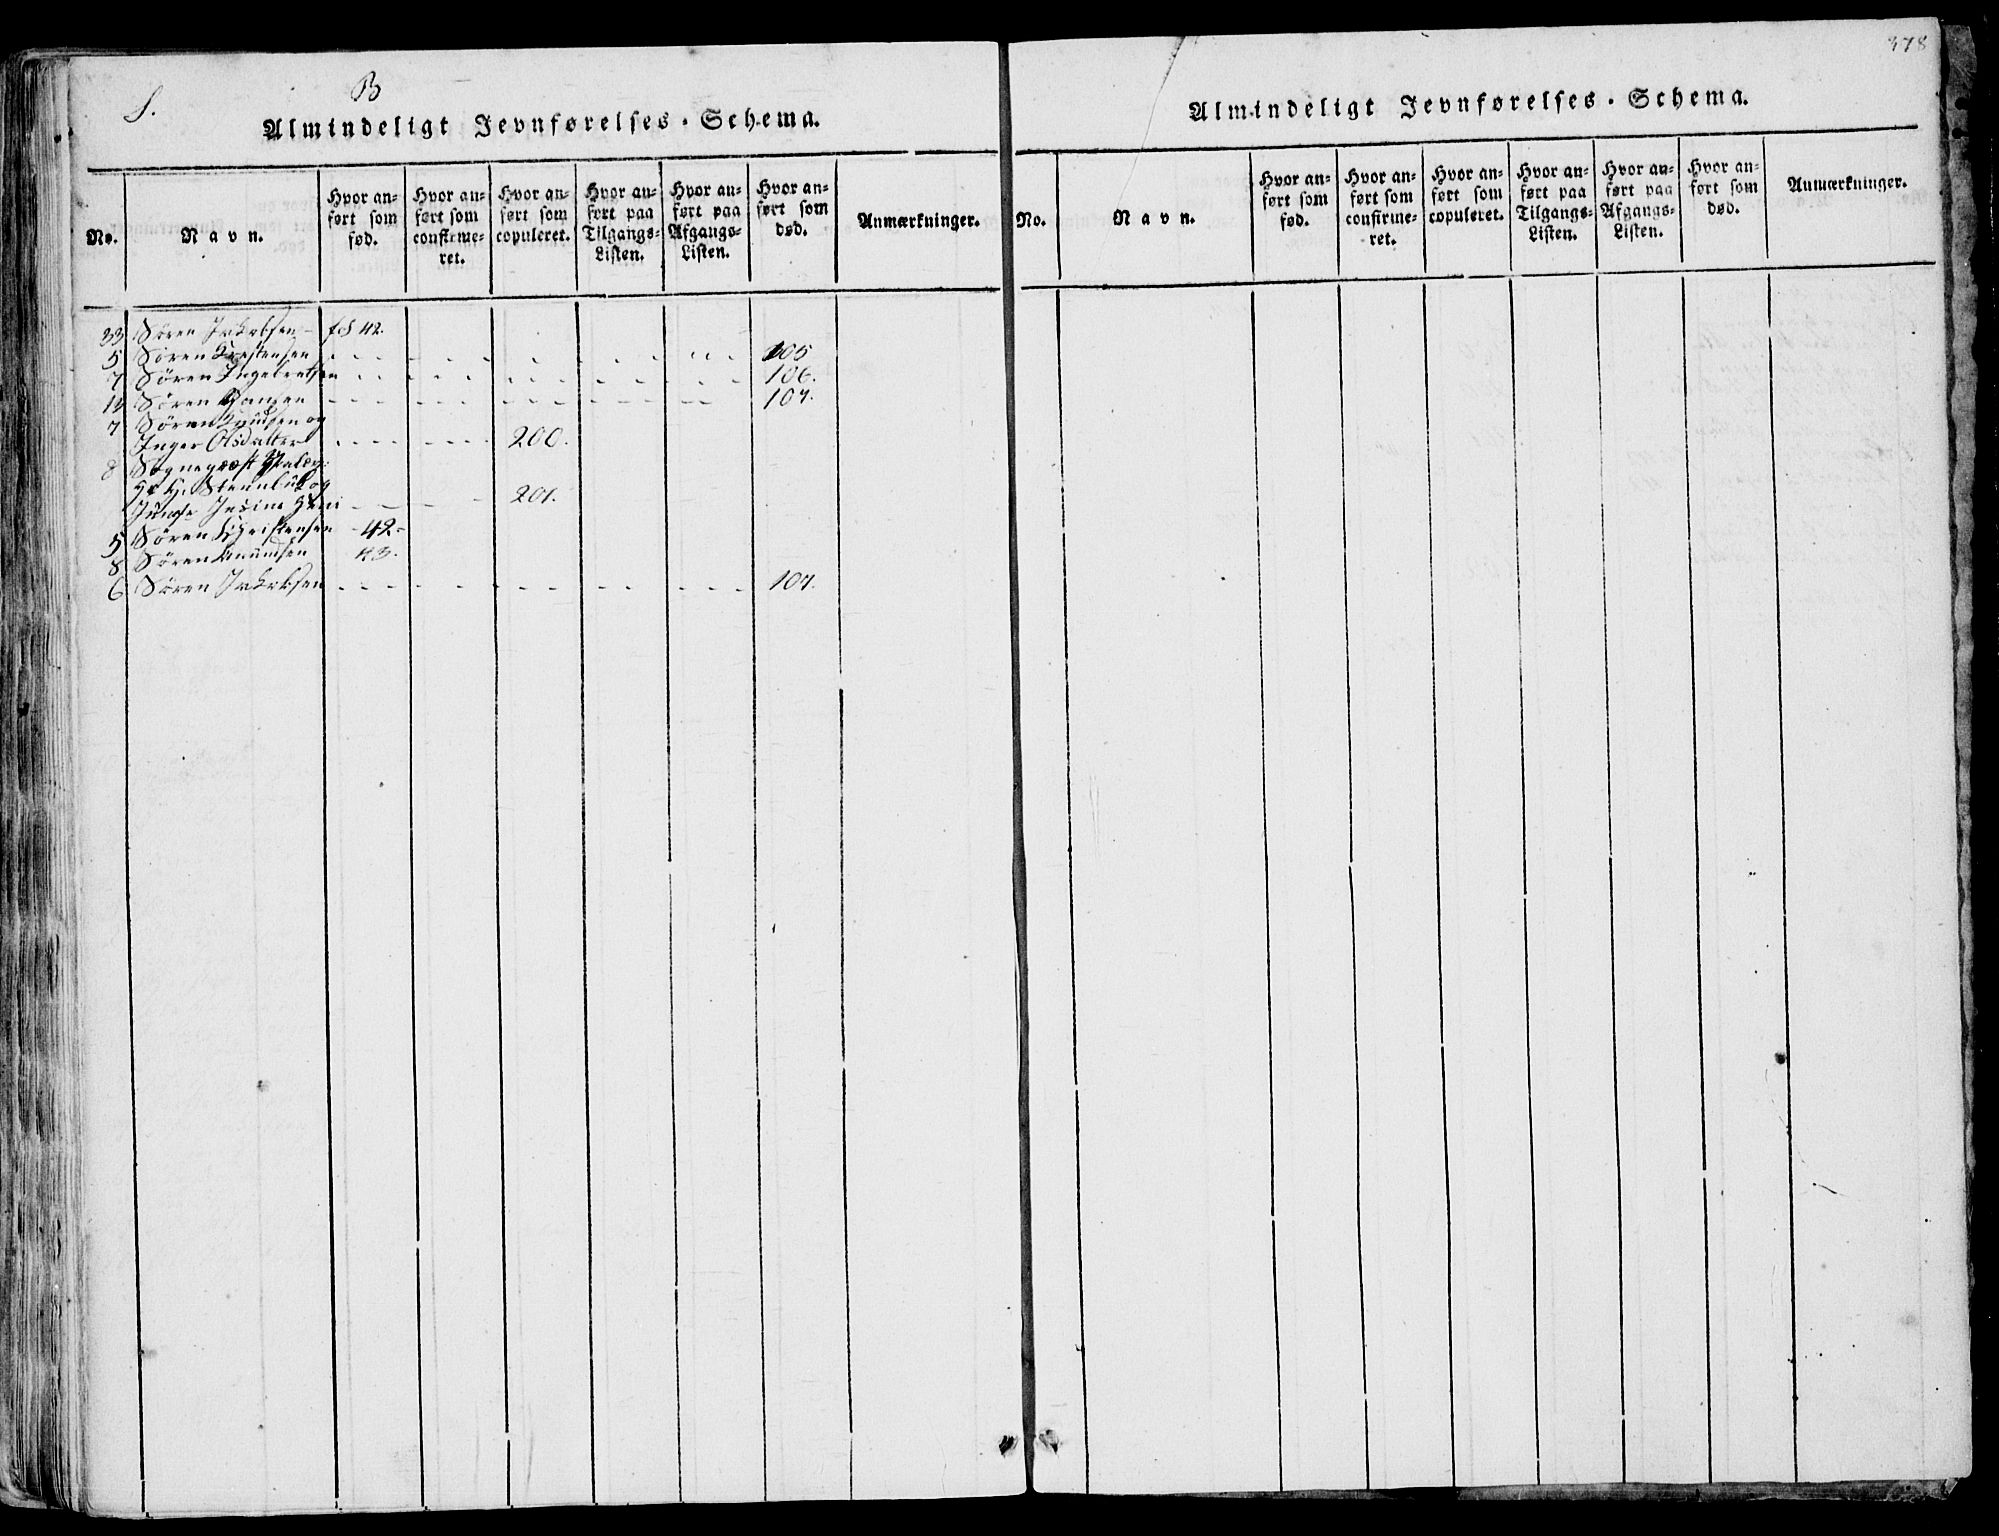 S.
B
Almindeligt Jevnførelses-Schema.
No.
Navn.
Hvor an-
ført som
fød.
Hvor an-
ført som
confirme-
ret.
Hvor an-
ført som
copuleret.
Hvor an-
ført paa
Tilgangs-
Listen.
Hvor an-
ført paa
Afgangs-
Listen.
Hvor an-
ført som
død.
Anmærkninger.
33 Sören Jakobsen - fol 42.
5 Sören Krestensen 105
7 Sören Ingebretsen 106.
14 Sören Hansen 107.
7 Sören Knudsen og
Inger Olsdatter 200.
8 Sogneprest
H. Steenbuk og
Jumfr 201.
5 Sören Christensen - 42 -
8 Sören Knudsen 43.
6 Sören Jakobsen 107.
378
Almindeligt Jevnførelses-Schema.
No.
Navn.
Hvor an-
ført som
fød.
Hvor an-
ført som
confirme-
ret.
Hvor an-
ført som
copuleret.
Hvor an-
ført paa
Tilgangs-
Listen.
Hvor an-
ført paa
Afgangs-
Listen.
Hvor an-
ført som
død.
Anmærkninger.